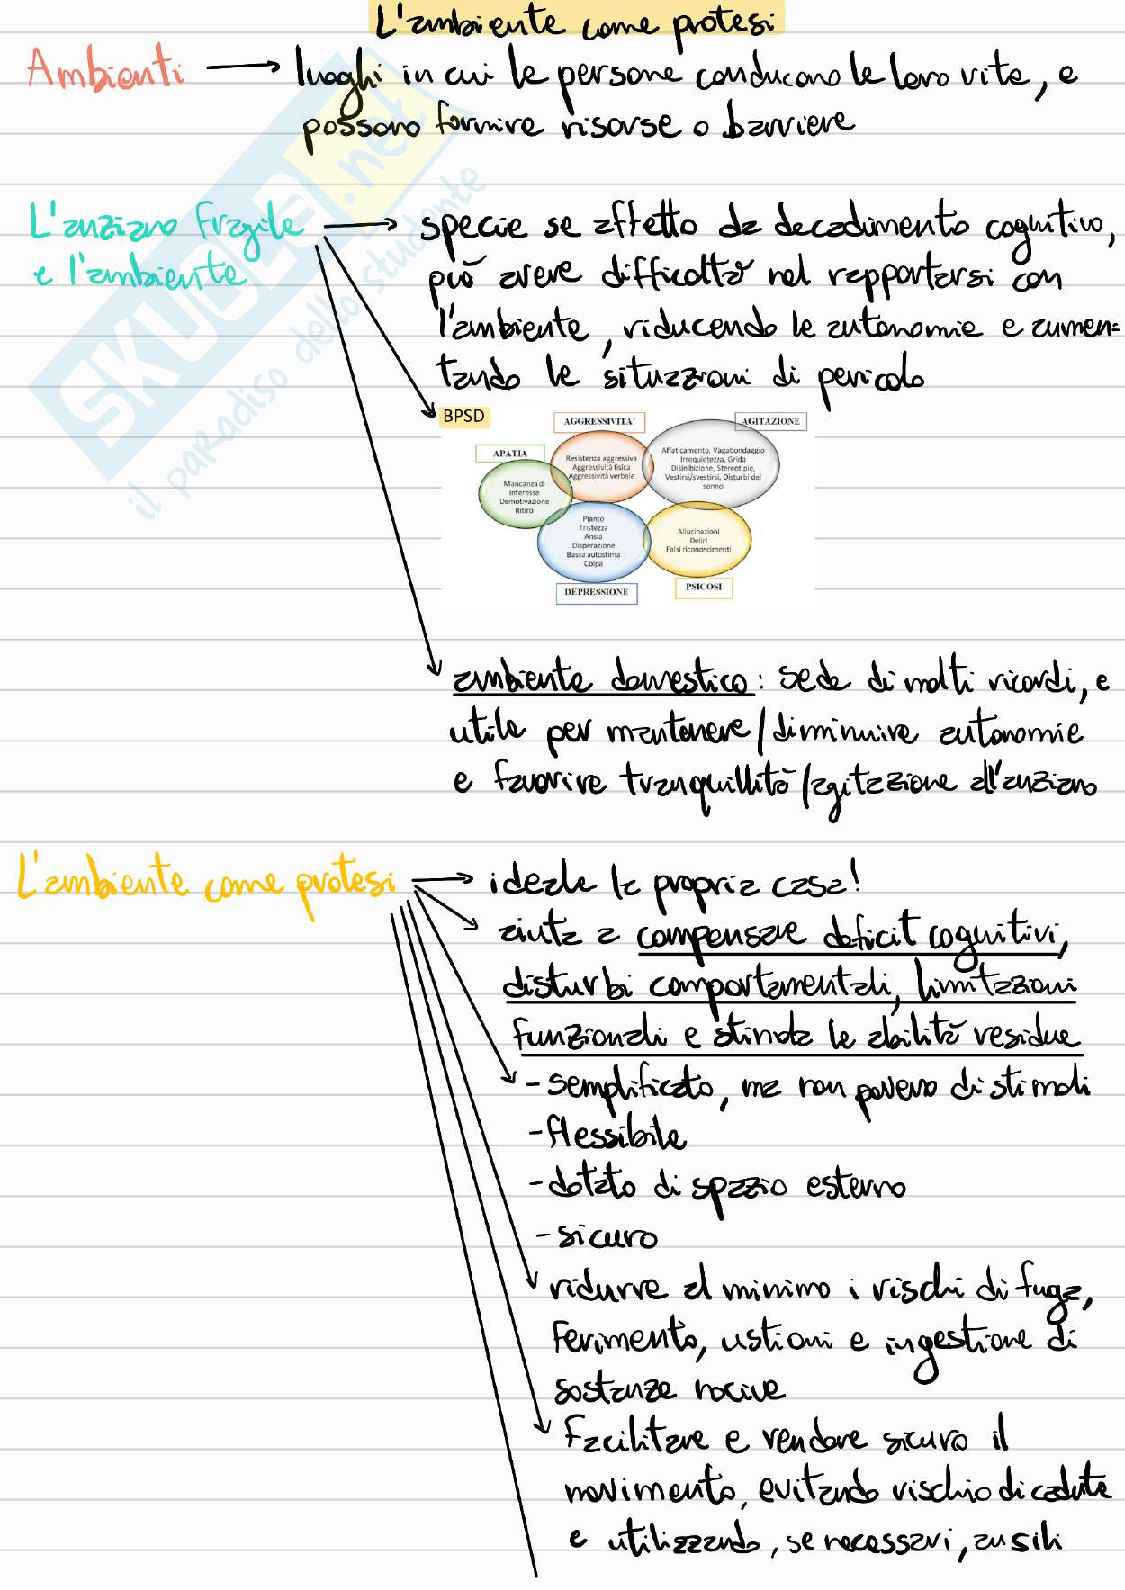 L'ambiente come protesi
Ambienti → luoghi in cui le persone conducono le loro vite, e
possono fornire risorse o barriere
L'anziano fragile → specie se affetto da decadimento cognitivo,
e l'ambiente
può avere difficoltà nel rapportarsi con
l'ambiente, riducendo le autonomie e aumen=
tando le situazioni di pericolo
BPSD
AGGRESSIVITA'
AGITAZIONE
APATIA
Resistenza aggressiva
Aggressività fisica
Aggressività verbale
Affaticamento, Vagabondaggio
Irrequietezza, Grida
Disinibizione, Stereotipie,
Vestirsi/svestirsi, Disturbi del
sonno
Mancanza di
interesse
Demotivazione
Ritiro
Pianto
Tristezza
Ansia
Disperazione
Bassa autostima
Colpa
Allucinazioni
Deliri
Falsi riconoscimenti
DEPRESSIONE
PSICOSI
ambiente domestico: sede di molti ricordi, e
utile per mantenere/diminuire autonomie
e favorire tranquillità/agitazione all'anziano
L'ambiente come protesi → ideale la propria casa!
aiuta a compensare deficit cognitivi,
disturbi comportamentali, limitazioni
funzionali e stimola le abilità residue
- semplificato, ma non povero di stimoli
- flessibile
- dotato di spazio esterno
- sicuro
ridurre al minimo i rischi di fuga,
ferimento, ustioni e ingestione di
sostanze nocive
facilitare e rendere sicuro il
movimento, evitando rischio di cadute
e utilizzando, se necessari, ausili
SKUOLA.net
il paradiso dello studente